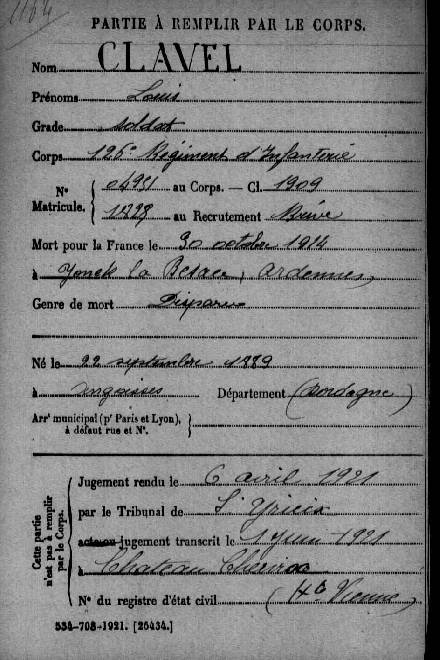 1164
PARTIE À REMPLIR PAR LE CORPS.
Nom CLAVEL
Prénoms Louis
Grade soldat
Corps 126e Régiment d'Infanterie
N° Matricule. { 04951 au Corps. — Cl. 1909
1228 au Recrutement Brive
Mort pour la France le 30 octobre 1914
à la Besace, Ardennes
Genre de mort Disparu
Né le 22 septembre 1889
à Département (Dordogne)
Arrt municipal (pr Paris et Lyon), à défaut rue et N°. }
Cette partie n'est pas à remplir par le Corps.
Jugement rendu le 6 avril 1921
par le Tribunal de St Yrieix
acte ou jugement transcrit le 1 juin 1921
à Chateau Chervix
(Hte Vienne)
N° du registre d'état civil
534-708-1921. [26434.]